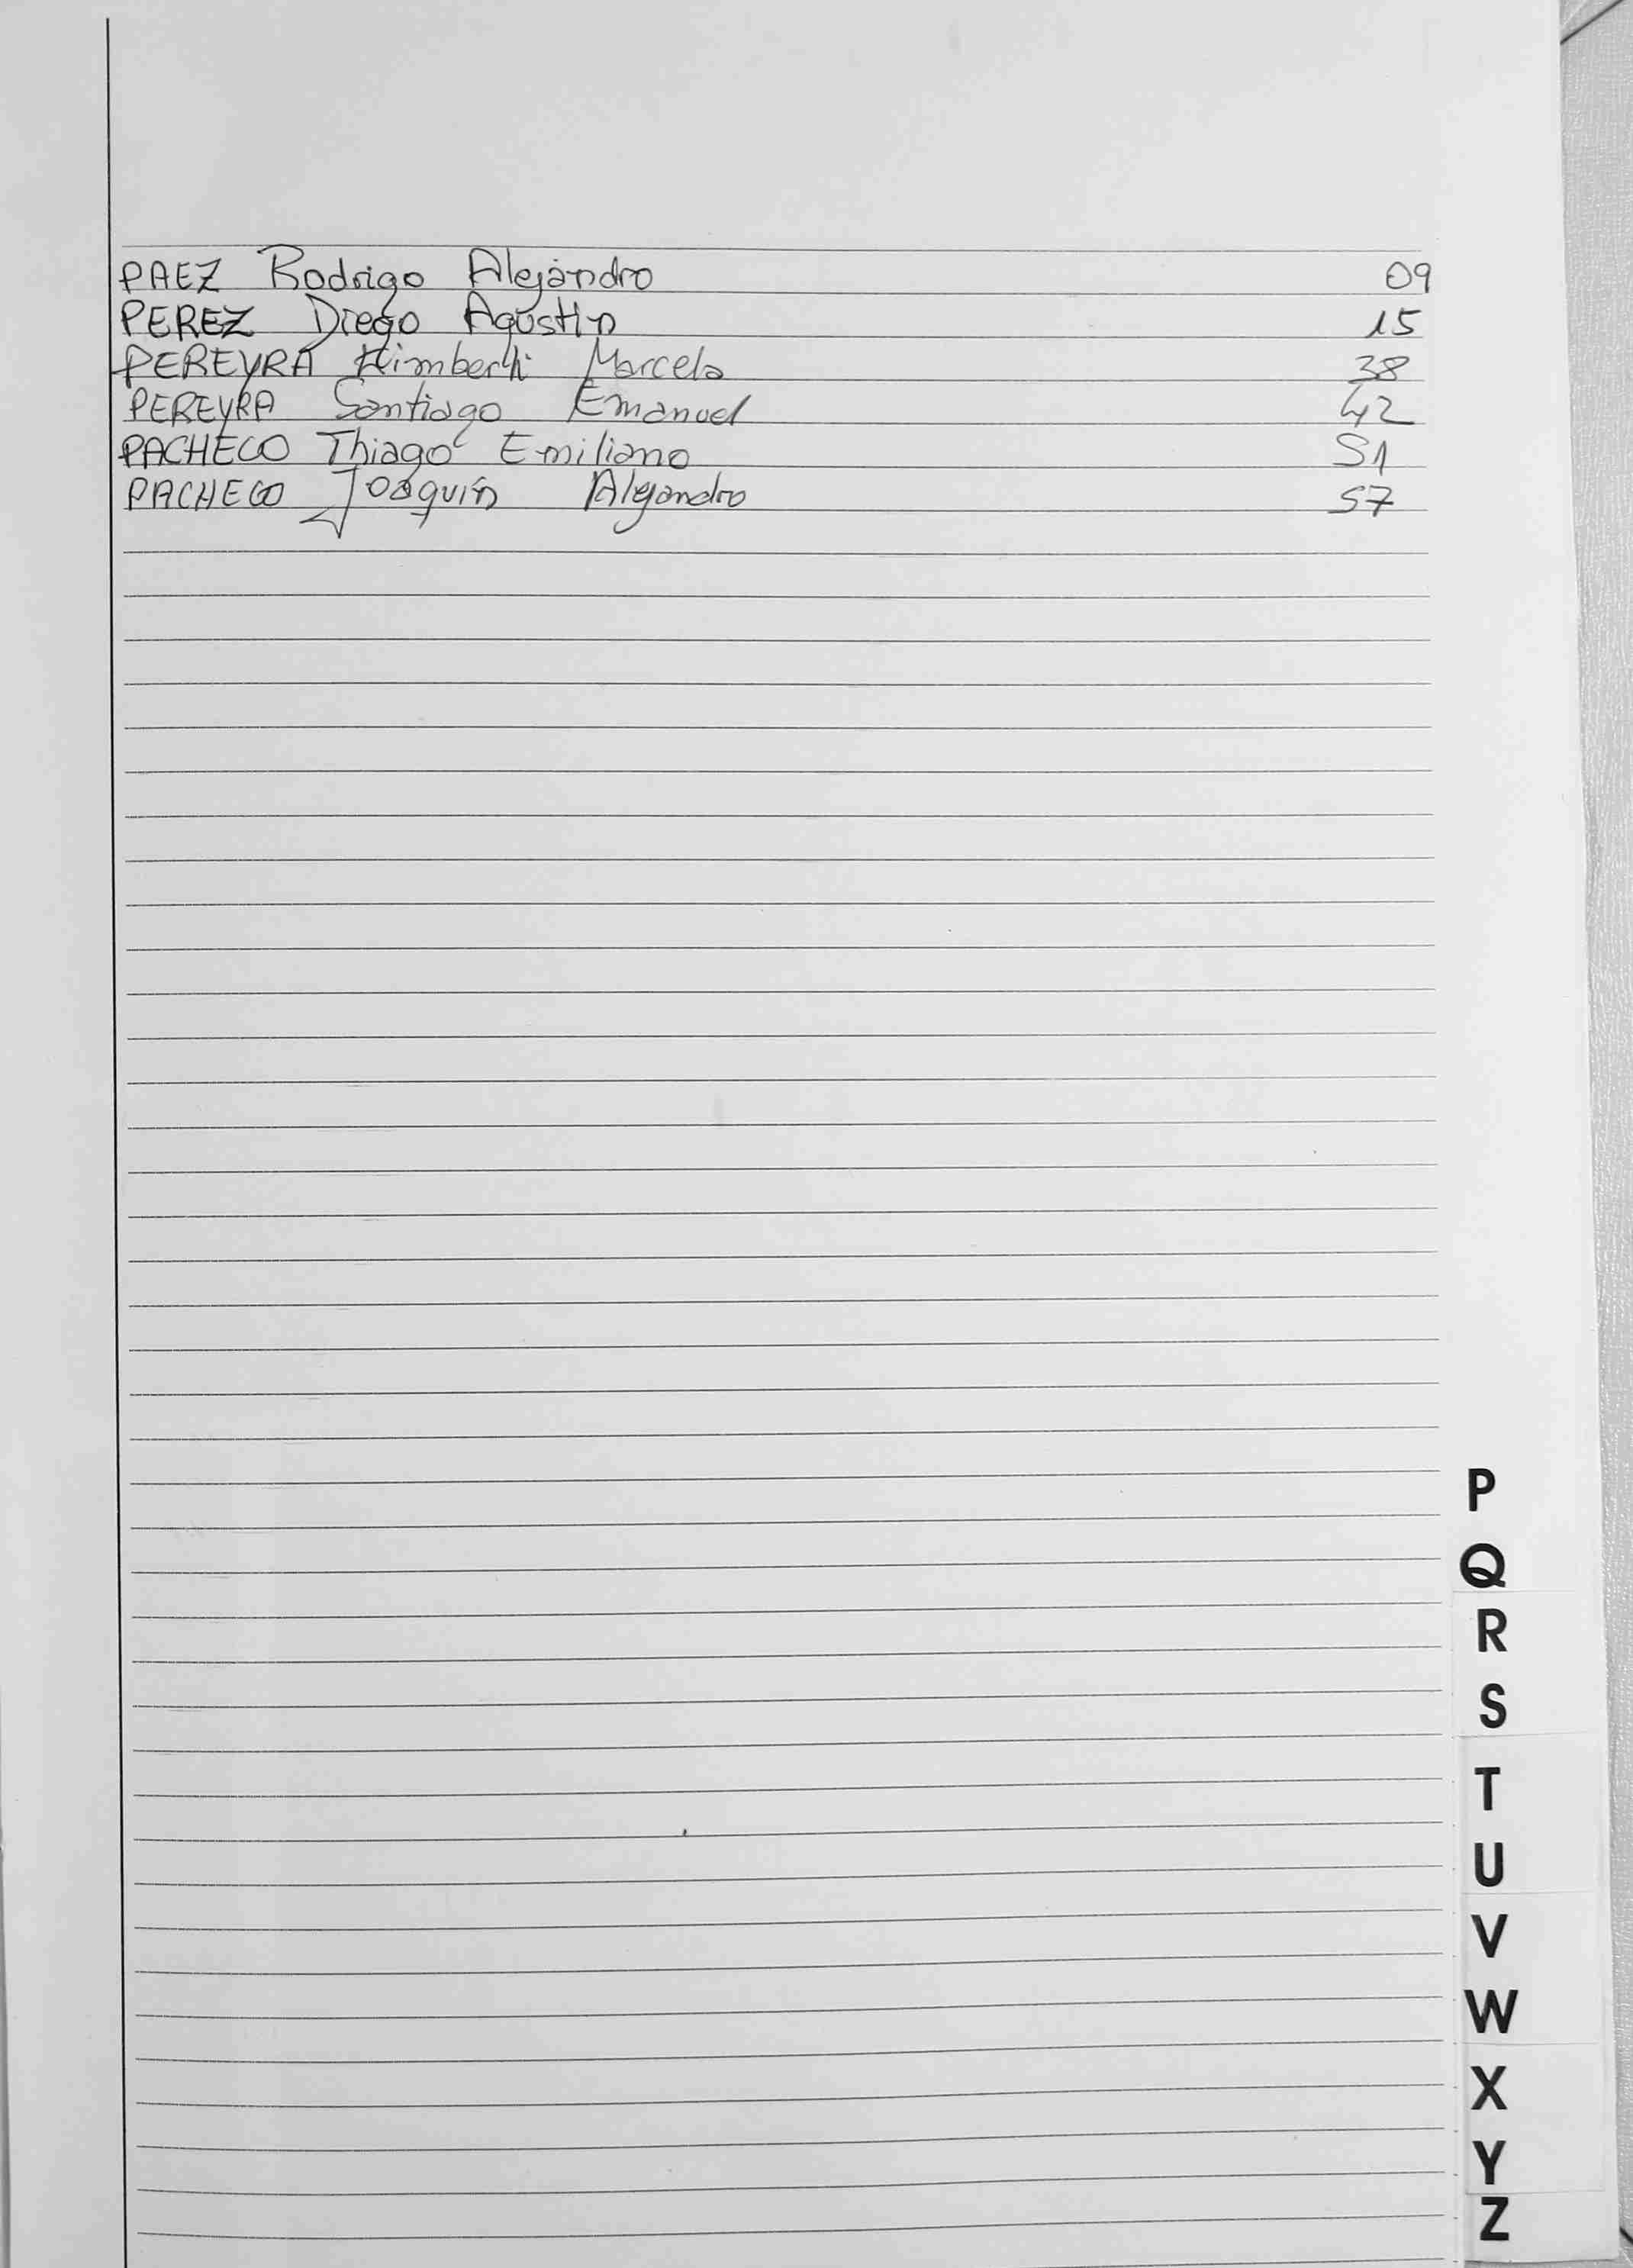 PAEZ Rodrigo Alejandro 09
PEREZ Diego Agustin 15
PEREYRA Kimberli Marcela 38
PEREYRA Santiago Emanuel 42
PACHECO Thiago Emiliano 51
PACHECO Joaquín Alejandro 57
P
Q
R
S
T
U
V
W
X
Y
Z